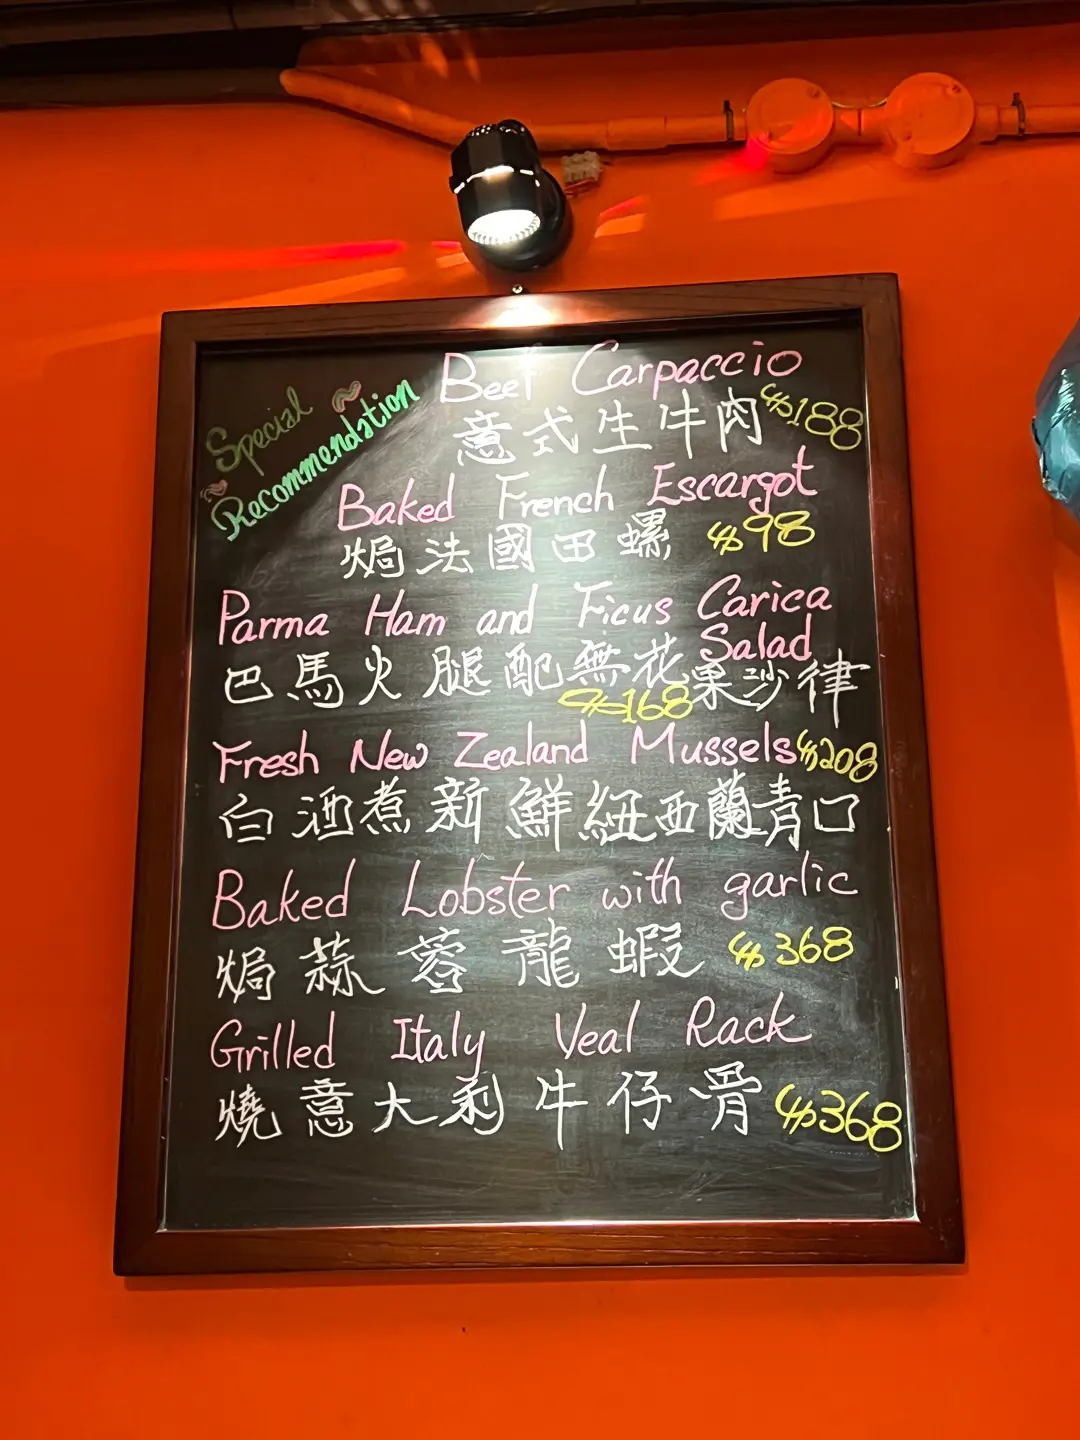 Special
Recommendation
Beef Carpaccio
意式生牛肉 $188
Baked French Escargot
焗法國田螺 $98
Parma Ham and Ficus Carica
Salad
巴馬火腿配無花果沙律
$168
Fresh New Zealand Mussels $208
白酒煮新鮮紐西蘭青口
Baked Lobster with garlic
焗蒜蓉龍蝦 $368
Grilled Italy Veal Rack
燒意大利牛仔骨 $368